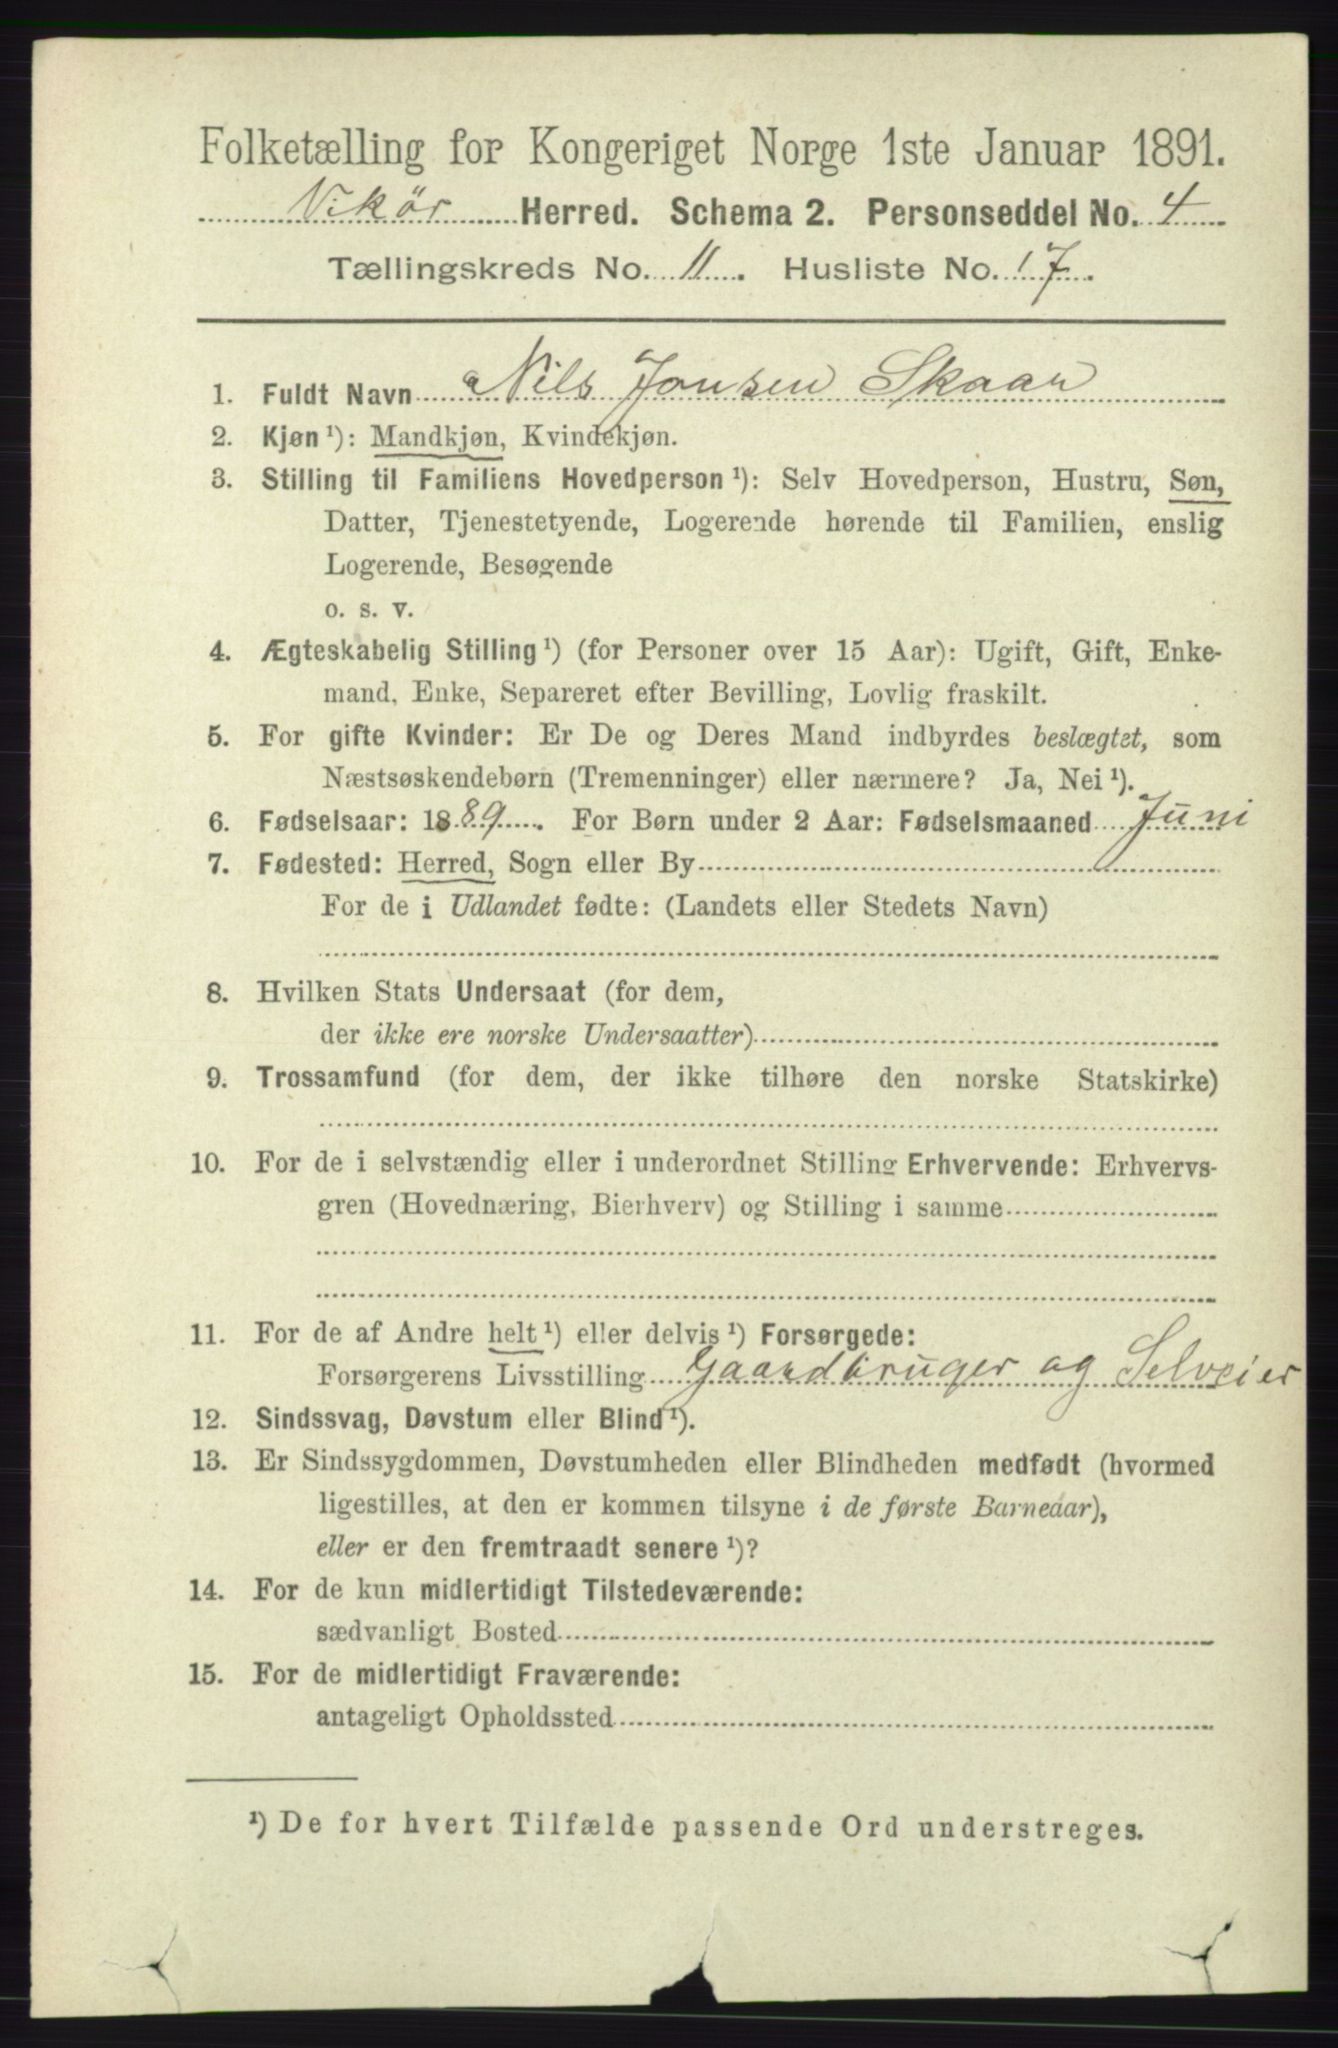 Folketælling for Kongeriget Norge 1ste Januar 1891.
Vikör Herred. Schema 2. Personseddel No. 4
Tællingskreds No. 11. Husliste No. 17.
1. Fuldt Navn Nils Jonsen Skaar
2. Kjøn ¹): Mandkjøn, Kvindekjøn.
3. Stilling til Familiens Hovedperson ¹): Selv Hovedperson, Hustru, Søn,
Datter, Tjenestetyende, Logerende hørende til Familien, enslig
Logerende, Besøgende
o. s. v.
4. Ægteskabelig Stilling ¹) (for Personer over 15 Aar): Ugift, Gift, Enke-
mand, Enke, Separeret efter Bevilling, Lovlig fraskilt.
5. For gifte Kvinder: Er De og Deres Mand indbyrdes beslægtet, som
Næstsøskendebørn (Tremenninger) eller nærmere? Ja, Nei ¹).
6. Fødselsaar: 1889. For Børn under 2 Aar: Fødselsmaaned Juni
7. Fødested: Herred, Sogn eller By
For de i Udlandet fødte: (Landets eller Stedets Navn)
8. Hvilken Stats Undersaat (for dem,
der ikke ere norske Undersaatter)
9. Trossamfund (for dem, der ikke tilhøre den norske Statskirke)
10. For de i selvstændig eller i underordnet Stilling Erhvervende: Erhvervs-
gren (Hovednæring, Bierhverv) og Stilling i samme
11. For de af Andre helt ¹) eller delvis ¹) Forsørgede:
Forsørgerens Livsstilling Gaardbruger og Selveier
12. Sindssvag, Døvstum eller Blind ¹).
13. Er Sindssygdommen, Døvstumheden eller Blindheden medfødt (hvormed
ligestilles, at den er kommen tilsyne i de første Barneaar),
eller er den fremtraadt senere ¹)?
14. For de kun midlertidigt Tilstedeværende:
sædvanligt Bosted
15. For de midlertidigt Fraværende:
antageligt Opholdssted
¹) De for hvert Tilfælde passende Ord understreges.